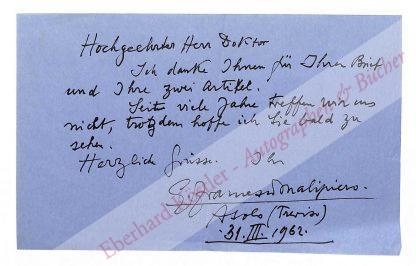 Hochgeehrter Herr Doktor
Ich danke Ihnen für Ihren Brief
und Ihre zwei Artikel.
Seits viele Jahre treffen wir uns
nicht, trotzdem hoffe ich Sie bald zu
sehen.
Herzlich Grüsse. Ihr
G. Francesco Malipiero.
Asolo (Treviso)
31. III 1962.
Eberhard Köstler - Autographen & Bücher